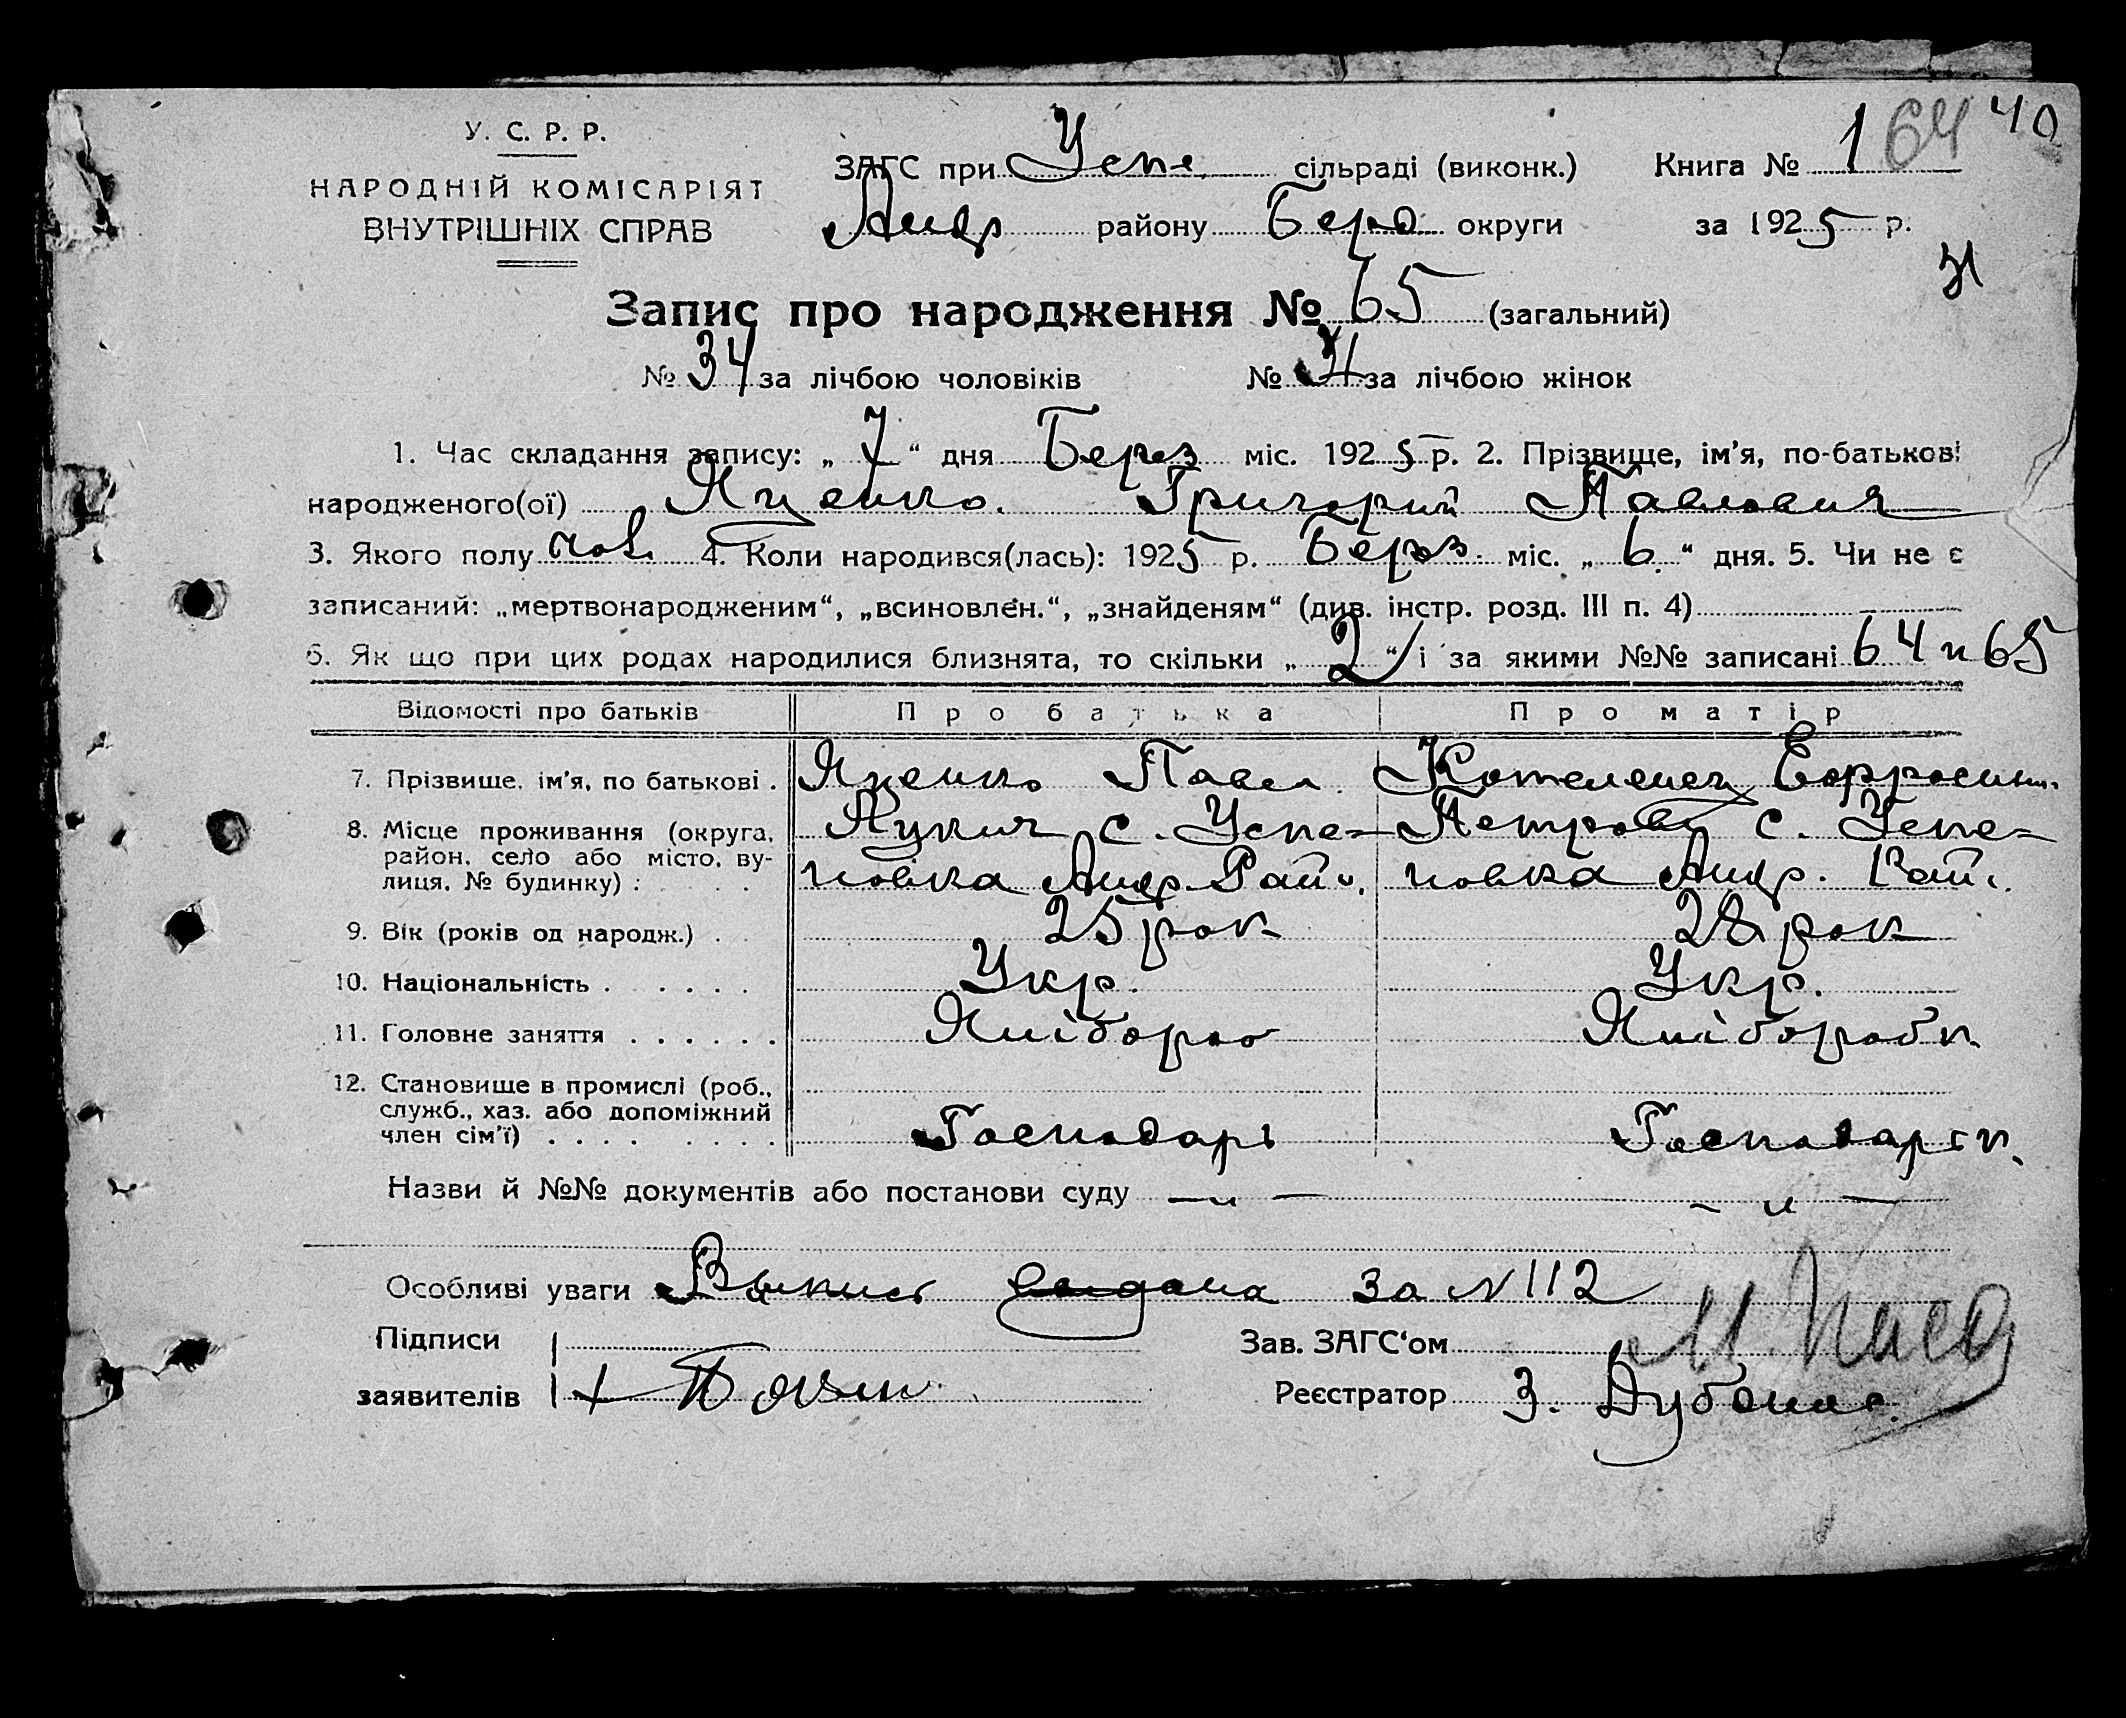 64 40
У. С. Р. Р.
НАРОДНІЙ КОМІСАРІЯТ
ВНУТРІШНІХ СПРАВ
ЗАГС при Успе. сільраді (виконк.) Книга № 1
Андр району Берд округи за 1925 р.
31
Запис про народження № 65 (загальний)
№ 34 за лічбою чоловіків № 31 за лічбою жінок
1. Час складання запису: „ 7 “ дня Берез міс. 1925 р. 2. Прізвище, ім'я, по-батькові
народженого(ої) Яценко. Григорий Павлович
3. Якого полу чол. 4. Коли народився(лась): 1925 р. Берез. міс. „ 6. “ дня. 5. Чи не є
записаний: „мертвонародженим“, „всиновлен.“, „знайденям“ (див. інстр. розд. III п. 4)
6. Як що при цих родах народилися близнята, то скільки „ 2 “ і за якими №№ записані 64 и 65
Відомості про батьків Про батька Про матір
7. Прізвище, ім'я, по батькові . Яценко Павел. Котеленец Ефросин.
8. Місце проживання (округа, Лукич с. Успе- Петровн с. Успе-
район, село або місто, ву-
лиця, № будинку) : новка Андр. Рай. новка Андр. Рай.
9. Вік (років од народж.) . 25 рок 28 рок
10. Національність . Укр. Укр.
11. Головне заняття Хліборо Хлібороб
12. Становище в промислі (роб.,
служб., хаз. або допоміжний
член сім'ї) Господарь Господар
Назви й №№ документів або постанови суду — „ — — „ —
Особливі уваги Выпись выдана за № 112
Підписи Зав. ЗАГС'ом
заявителів + Реєстратор З.